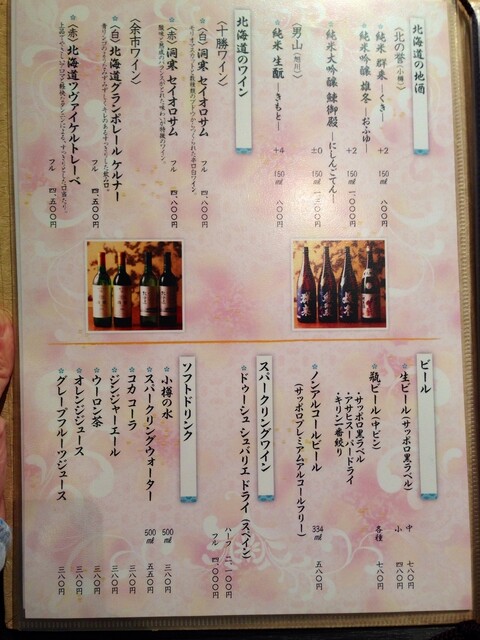 北海道の地酒
〈北の誉〉(小樽)
純米 群来 ―くき― +2 150㎖ 八〇〇円
純米吟醸 雄冬 ―おふゆ― +2 150㎖
純米大吟醸 鰊御殿 ―にしんごてん― ±0 150㎖ 一、三〇〇円
〈男山〉(旭川)
純米 生酛 ―きもと― +4 150㎖ 八〇〇円
北海道のワイン
〈十勝ワイン〉
〈白〉 洞寒 セイオロサム フル 四、八〇〇円
〈赤〉 洞寒 セイオロサム フル 四、八〇〇円
酸味と熟成のバランスのとれた味わいが特徴のワイン。
〈余市ワイン〉
〈白〉 北海道グランポレール ケルナー フル 四、五〇〇円
〈赤〉 北海道ツヴァイゲルトレーベ フル 四、五〇〇円
ビール
生ビール(サッポロ黒ラベル) 中 七八〇円
小
瓶ビール(中ビン) 各種 七八〇円
・サッポロ黒ラベル
・アサヒスーパードライ
・キリン一番絞り
ノンアルコールビール 334㎖ 五八〇円
(サッポロプレミアムアルコールフリー)
スパークリングワイン
ドゥーシュ シュバリエ ドライ(スペイン) ハーフ 二、一〇〇円
フル 四、〇〇〇円
ソフトドリンク
小樽の水 500㎖ 三八〇円
スパークリングウォーター 500㎖ 五五〇円
コカ コーラ 三八〇円
ジンジャーエール 三八〇円
ウーロン茶 三八〇円
オレンジジュース 三八〇円
グレープフルーツジュース 三八〇円